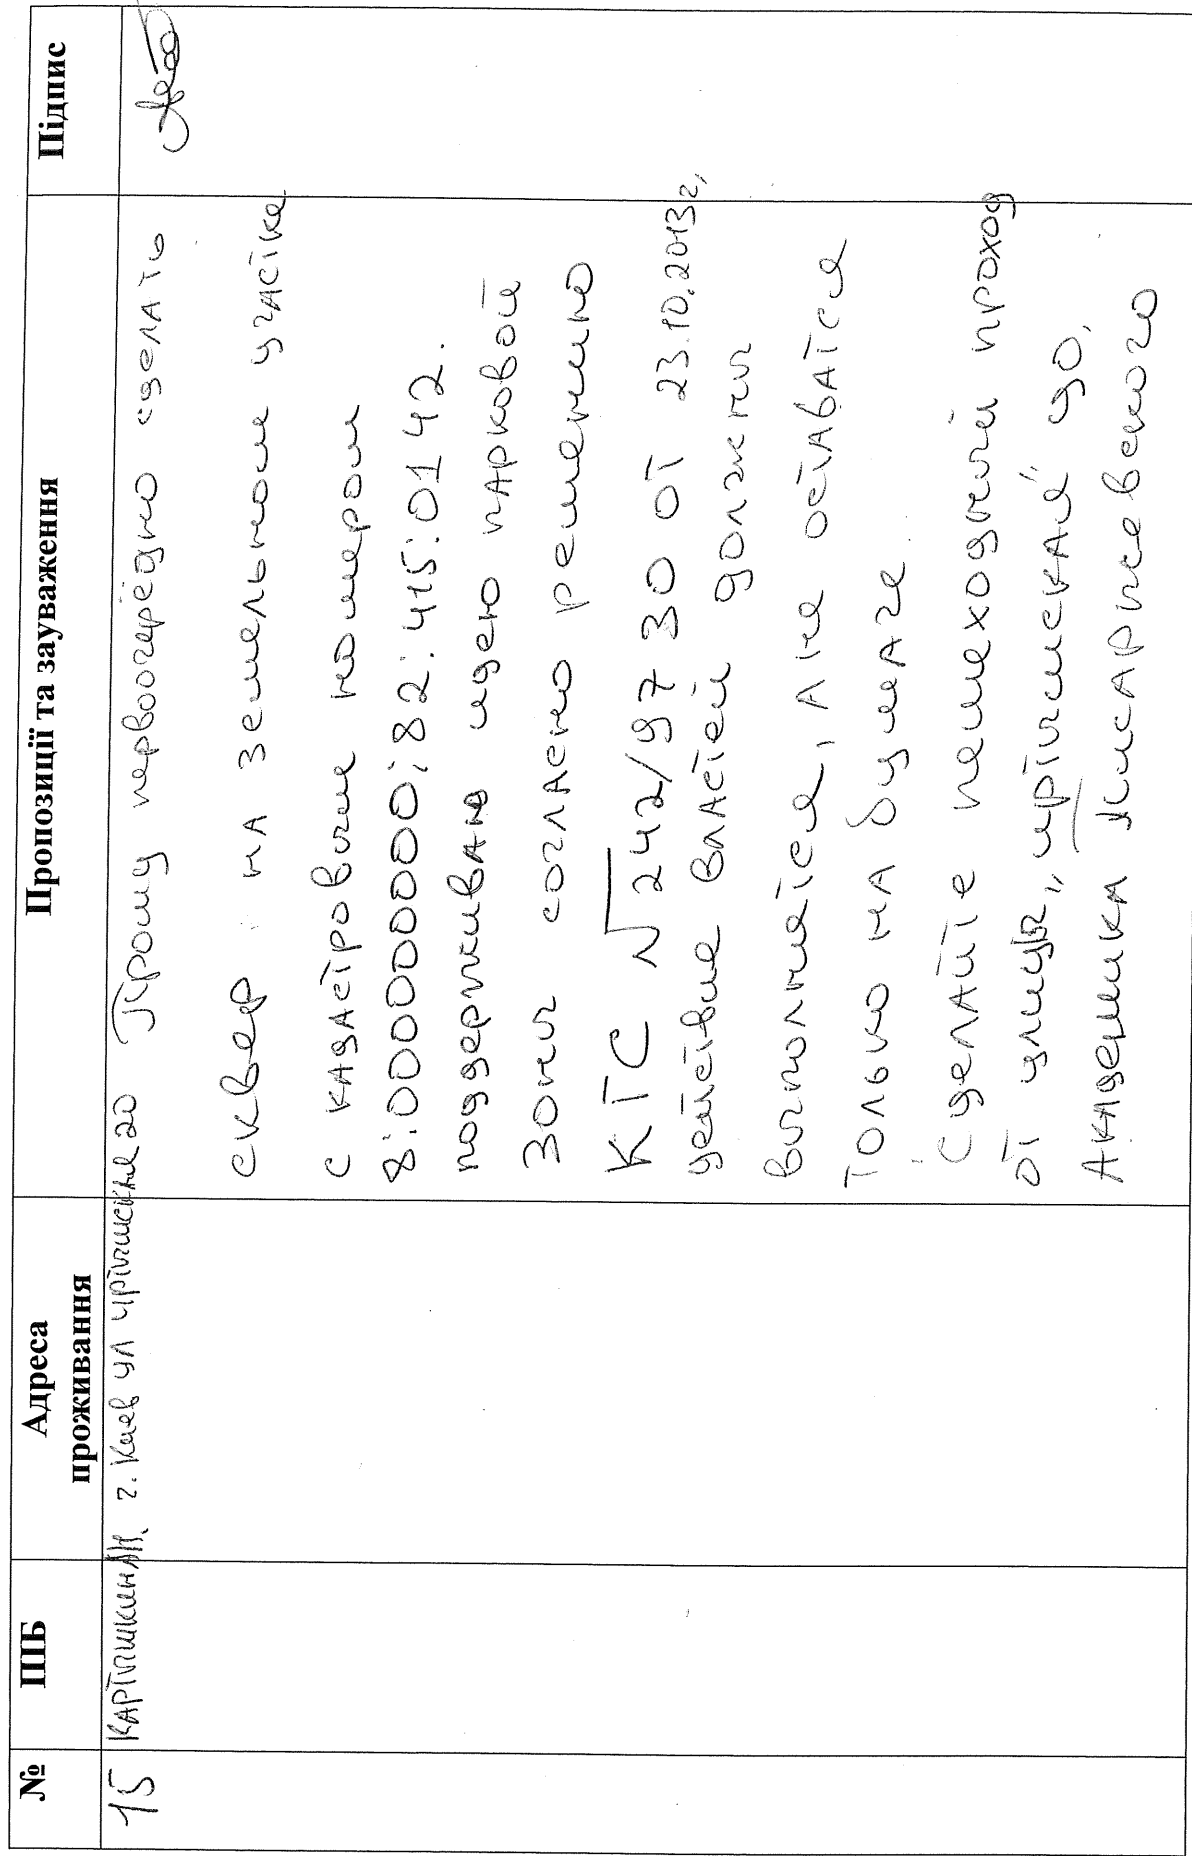 № ПІБ Адреса проживання Пропозиції та зауваження Підпис
15 Картышкин г. Киев ул Иртышская 20 Прошу первоочерёдно сделать
сквер на земельном участке
с кадастровым номером
8:000000000:82:415:0142.
поддерживаю идею парковой
зоны согласно решению
КТС √242/9730 от 23.10.2013г,
действие властей должны
выполнятся, а не оставатся
только на бумаге
Сделайте пешеходный проход
от улицы „Иртышская" до,
Академика Писаржевского